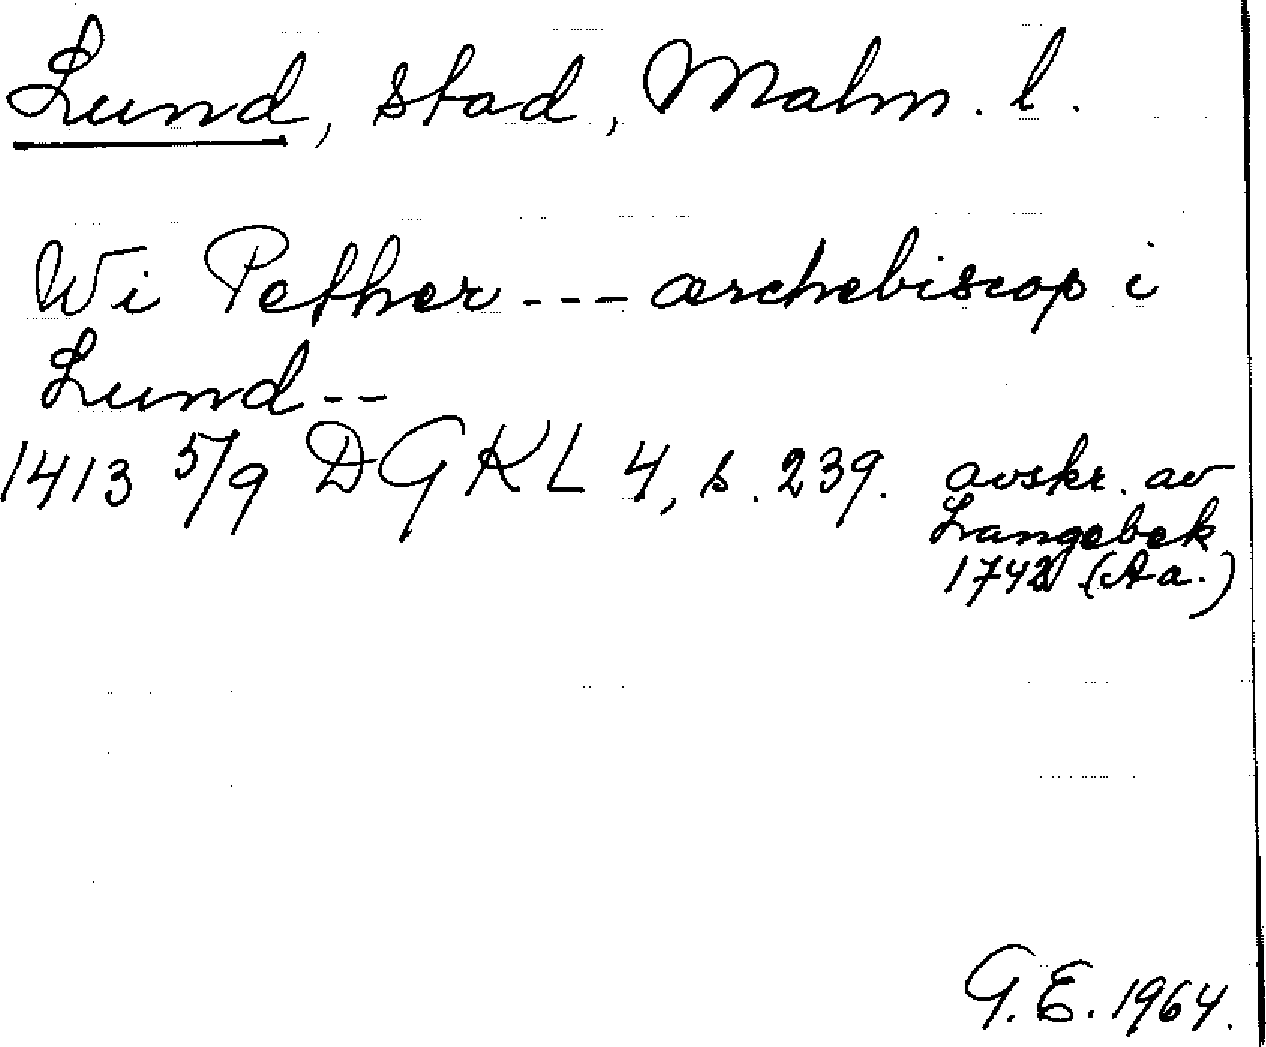 Lund, stad, Malm. l.
Wi Pether --- ærchebiscop i
Lund --
1413 5/9 DGKL 4, s. 239. avskr. av
Langebek
1742 (Aa.)
G.E. 1964.